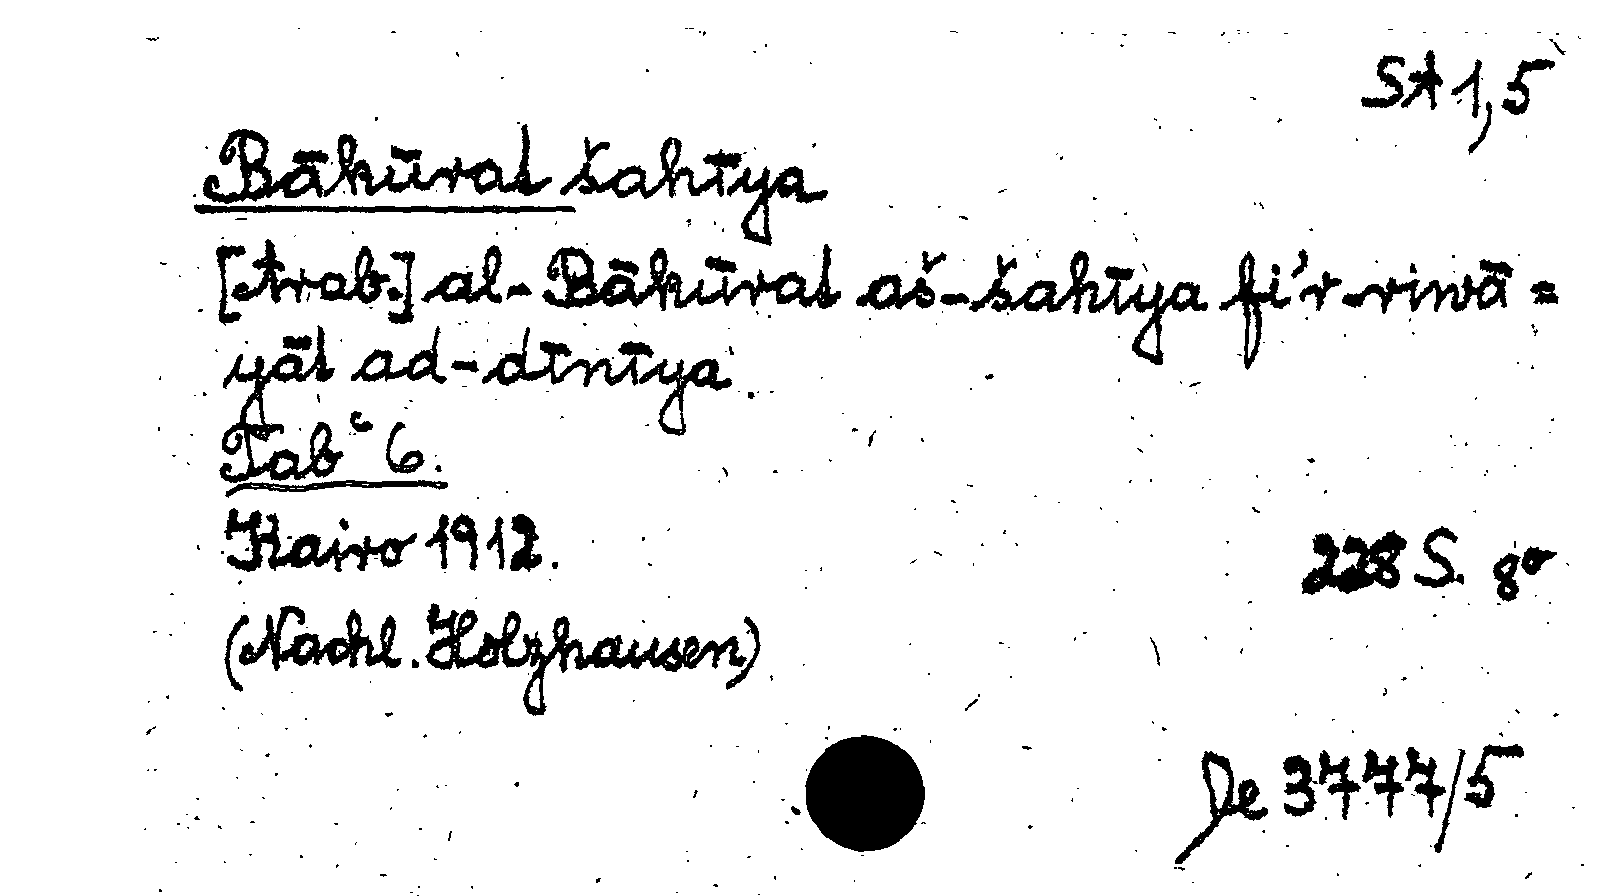 St 1,5
Bākūrat šahīya
[Arab.] al-Bākūrat aš-šahīya fi'r-riwā=
yāt ad-dīnīya.
Ṭabʿ 6.
Kairo 1912.
228 S. 8°
(Nachl. Holzhausen)
De 3777/5